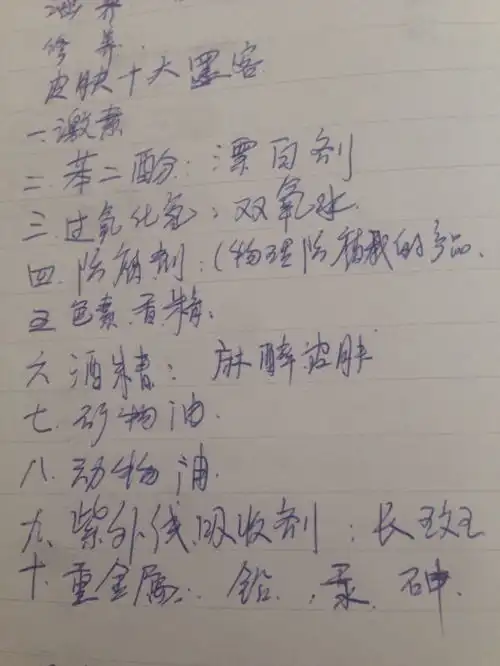 滋养
修养.
皮肤十大黑客
一.激素
二.苯二酚:漂白剂
三.过氧化氢:双氧水.
四.防腐剂:(物理防腐的产品.
五.色素.香精.
六.酒精:麻醉皮肤
七.矿物油.
八.动物油.
九.紫外线吸收剂:长斑
十.重金属:铅.汞.砷.